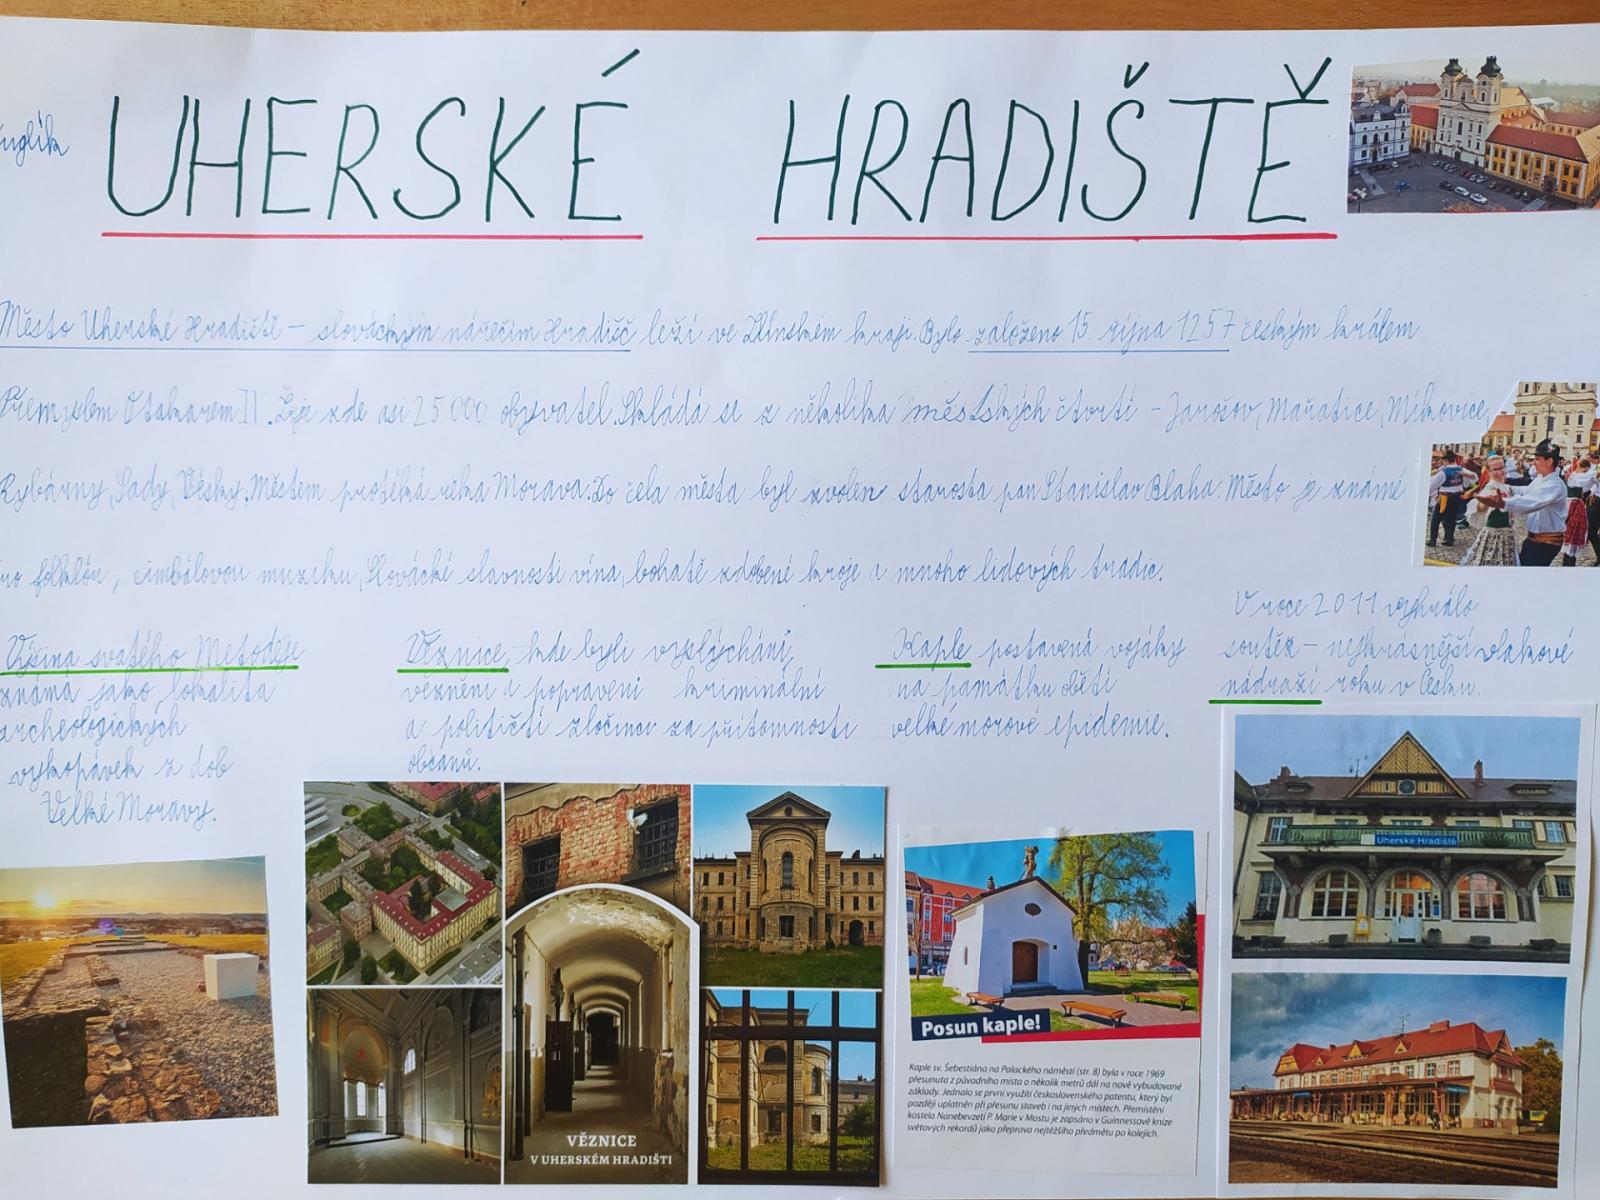 UHERSKÉ HRADIŠTĚ
Město Uherské Hradiště – slováckým nářečím Hradišč leží ve Zlínském kraji. Bylo založeno 15. října 1257 českým králem
Přemyslem Otakarem II. Žije zde asi 25 000 obyvatel. Skládá se z několika městských čtvrtí – Jarošov, Mařatice, Míkovice,
Rybárny, Sady, Vésky. Městem protéká řeka Morava. Do čela města byl zvolen starosta pan Stanislav Blaha. Město je známé
pro folklór, cimbálovou muziku, Slovácké slavnosti vína, bohatě zdobené kroje a mnoho lidových tradic.
Výšina svatého Metoděje
známá jako lokalita
archeologických
vykopávek z dob
Velké Moravy.
Věznice, kde byli vyslýcháni,
vězněni a popraveni kriminální
a političtí zločinci za přítomnosti
občanů.
Kaple postavená vojáky
na památku obětí
velké morové epidemie.
V roce 2011 vyhrálo
soutěž – nejkrásnější vlakové
nádraží roku v Česku.
VĚZNICE
V UHERSKÉM HRADIŠTI
Posun kaple!
Kaple sv. Šebestiána na Palackého náměstí (str. 8) byla v roce 1969
přesunuta z původního místa o několik metrů dál na nově vybudované
základy. Jednalo se první využití československého patentu, který byl
později uplatněn při přesunu staveb i na jiných místech. Přemístění
kostela Nanebevzetí P. Marie v Mostu je zapsáno v Guinnessově knize
světových rekordů jako přeprava nejtěžšího předmětu po kolejích.
Uherské Hradiště